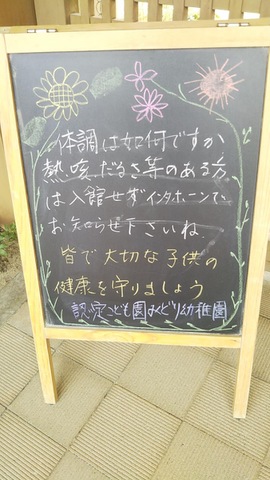 体調は如何ですか
熱、咳、だるさ等のある方
は入館せずインターホーンで、
お知らせ下さいね。
皆で大切な子供の
健康を守りましょう
認定こども園みどり幼稚園